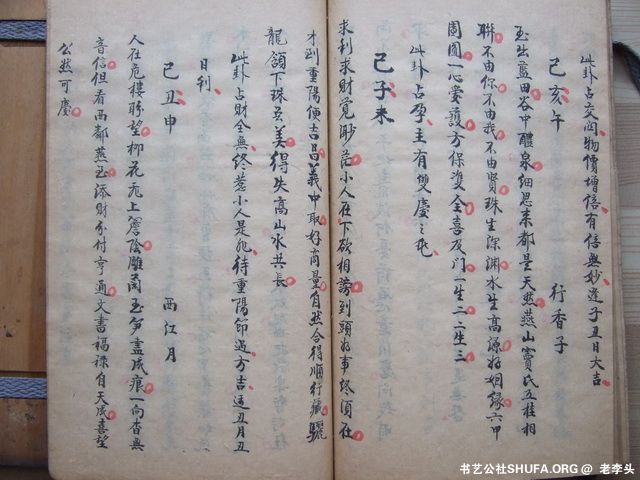 此卦占交関物價增倍有倍無妙逢子丑日大吉
己亥午 行香子
玉出藍田谷中醴泉細思来都是天然燕山竇氏五桂相
聯不由你不由我不由賢珠生深渊水生高源好姻緣六甲
周圓一心愛護方保㕠全喜友門一生二二生三
此卦占孕主有雙慶之兆
己子未
求利求財覓眇茫小人在下欲相謗到頭好事終須在
才到重陽便吉昌義中取好商量自然合得順行藏驪
龍頷下珠
美得失高山水共長
此卦占財全無終惹小人是非待重陽節過方吉逢丑月丑
日利
己丑申 西江月
人在危樓盼望柳花
上簷陰雕蘭玉笋盡成痕一向杳無
音信但看西都燕玉添財分付亨通文書福祿自天成喜望
公然可慶
书艺公社SHUFA.ORG @ 老李头